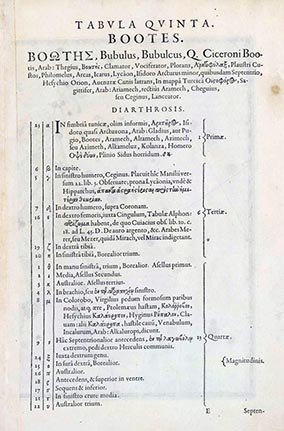 TABVLA QVINTA.
BOOTES.
ΒΟΩΤΗΣ, Bubulus, Bubulcus, Q. Ciceroni Boo-
tis, Arab: Thegius, Βοωτης, Clamator, Vociferator, Plorans, Plaustri Cu-
stos, Philomelus, Arcas, Icarus, Lycaon, Isidoro Arcturus minor, quibusdam Septentrio,
Hesychio Orion, Auenzræ Canis latrans, in mappa Turcica
Sagittifer, Arab: Ariamech, rectius Aramech, Cheguius,
seu Ceginus, Lanceator.
DIARTHROSIS.
IN fimbria tunicæ, olim informis, Isi-
doro quasi Arctuzona, Arab: Gladius, aut Pu-
gio, Bootes, Aramech, Alramech, Azimech,
seu Azimeth, Alkameluz, Kolanza, Homero
Plinio Sidus horridum.
Primæ
6 β In capite.
In sinistro humero, Ceginus. Placuit hîc Manilij versum
22. lib. 5. Obseruare, prona Lycaonia, vnde &
Hipparchus,
7 δ In dextro humero, supra Coronam.
16 ε In dextro femore, iuxta Cingulum, Tabulæ Alphon:
habent, de quo Cuiacius obs. lib. 11. c.
18. ad L. 45. D. de auro argento, &c. Arabes Me-
zer, seu Mezer, quidã Mirach, vel Mirac indigetant.
6 Tertiæ.
19 ζ In dextra tibia.
20 η In sinistra tibia, Borealior trium.
1 θ In manu sinistra, trium, Borealior. Asellus primus.
2 ι Media, Asellus Secundus.
3 κ Australior. Asellus tertius.
4 λ In brachio, seu sinistro.
8 μ In Colorobo, Virgilius pedum formosum paribus
nodis, Ptolemæus hastam,
Hesychius Hyginus Cla-
uam ralis hastile curuũ, Venabulum,
Incalurum, Arab: Alkalurops, dicunt.
9 ν Hac Septentrionalior antecedens,
extremo, pedi dextro Herculis communis.
13 Quartæ
14 ξ Iuxta dextrum genu.
15 ο In sura dextra, Borealior.
π Australior.
ρ Antecedens, & superior in ventre.
17 σ Sequens & inferior.
τ In sinistro crure media.
22 υ Australior trium.
Magnitudinis.
E
Septen-